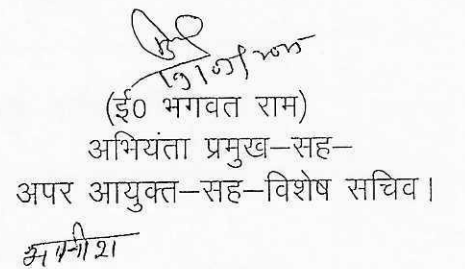 (ई0 भगवत राम)
अभियंता प्रमुख–सह–
अपर आयुक्त–सह–विशेष सचिव।